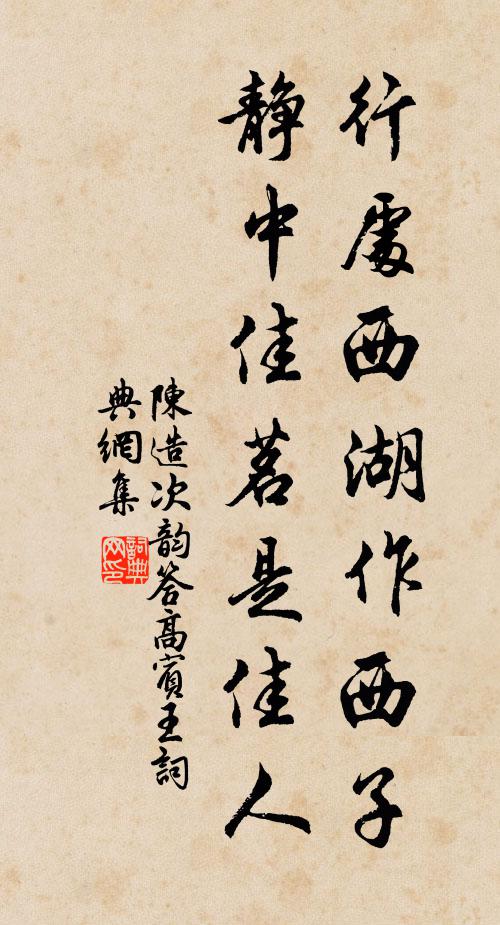 行處西湖作西子
靜中佳茗是佳人
陳造次韵答高賓王詞
典網集
詞典
网印